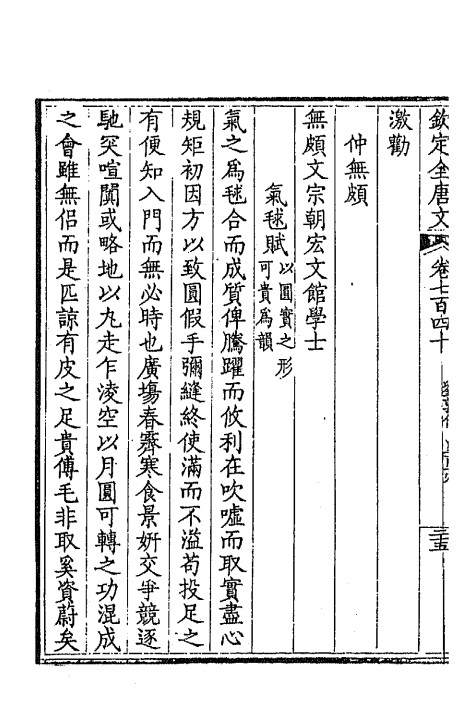 欽定全唐文 卷七百四十 三五
激勸
仲無頗
無頗文宗朝宏文館學士
氣毬賦以圓實之形可貴為韻
氣之為毬合而成質俾騰躍而攸利在吹噓而取實盡心
規矩初因方以致圓假手彌縫終使滿而不溢苟投足之
有便知入門而無必時也廣場春霽寒食景妍交爭競逐
馳突喧闐或略地以丸走乍淩空以月圓可轉之功混成
之會雖無侶而是匹諒有皮之足貴傅毛非取奚資蔚矣